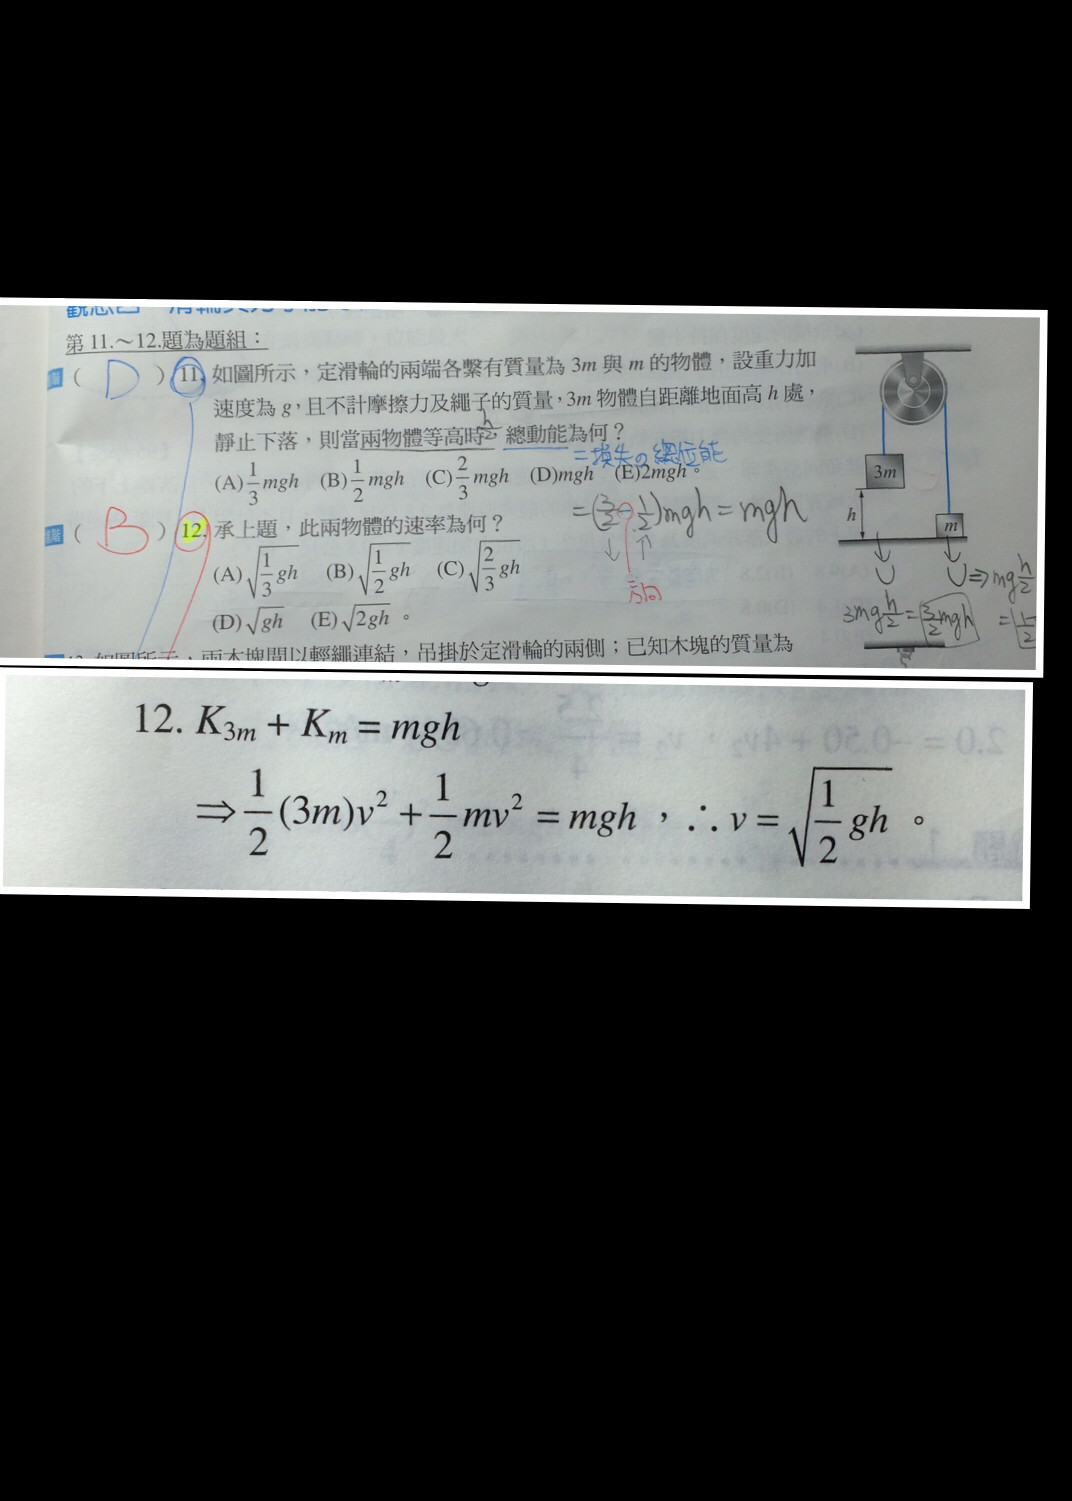 第 11.～12.題為題組：
( D ) 11. 如圖所示，定滑輪的兩端各繫有質量為 3m 與 m 的物體，設重力加
速度為 g，且不計摩擦力及繩子的質量，3m 物體自距離地面高 h 處，
靜止下落，則當兩物體等高時 h/2，總動能為何？
=損失の總位能
(A) 1/3 mgh (B) 1/2 mgh (C) 2/3 mgh (D) mgh (E) 2mgh。
= (3/2 - 1/2) mgh = mgh
↓ ↑
方向
( B ) 12. 承上題，此兩物體的速率為何？
(A) √(1/3 gh) (B) √(1/2 gh) (C) √(2/3 gh)
(D) √gh (E) √2gh。
3m
h
m
U
U ⇒ mg h/2
3mg h/2 = 3/2 mgh
= 1/2
13. 如圖所示，兩木塊間以輕繩連結，吊掛於定滑輪的兩側；已知木塊的質量為
12. K3m + Km = mgh
⇒ 1/2 (3m)v² + 1/2 mv² = mgh，∴ v = √(1/2 gh)。